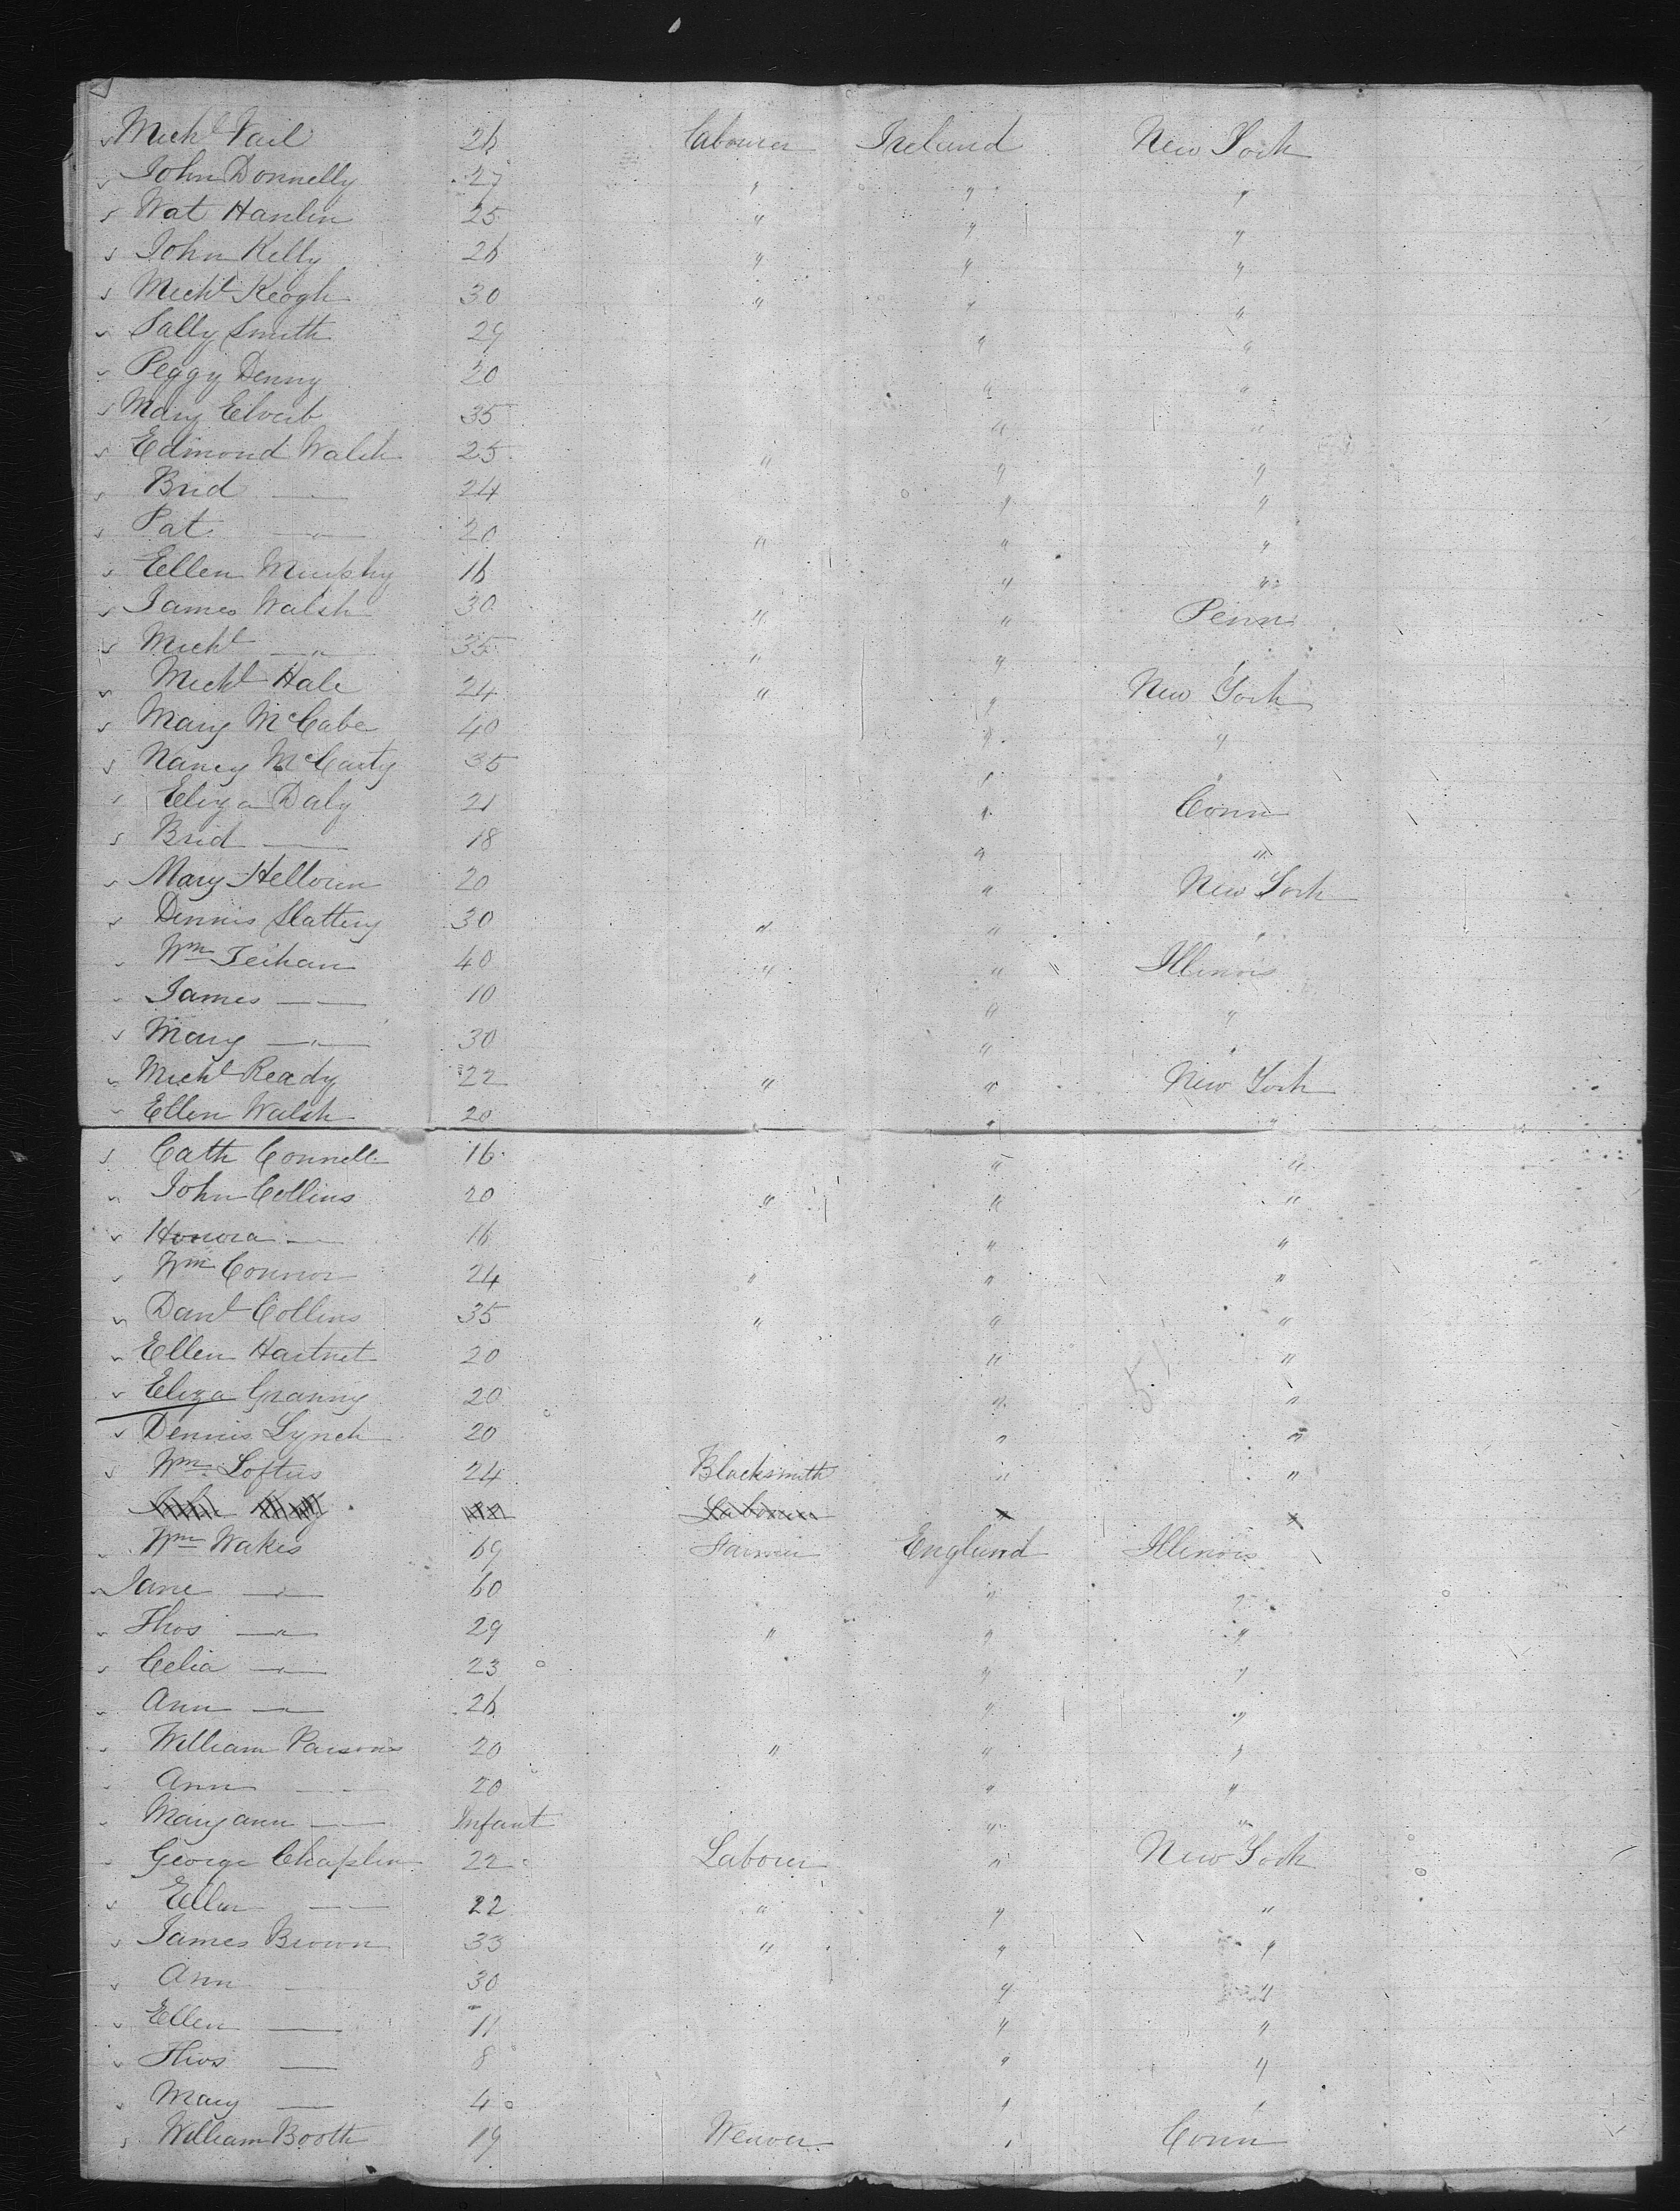 Michl Vail 26 Labourer Ireland New York
John Donnelly 27 " " "
Wat Hanlin 25 " " "
John Kelly 26 " " "
Michl Keogh 30 " " "
Sally Smith 29 " "
Peggy Denny 20 " "
Mary 35 " "
Edmond Walsh 25 " " "
Brid — 24 " "
Pat —"— 20 " " "
Ellen Murphy 16 " "
James Walsh 30 " " Penn
Michl —"— 35 " " "
Michl Hale 24 " " New York
Mary McCabe 40 " "
Nancy McCarty 35 " "
Eliza Daly 21 " Conn
Brid — 18 " "
Mary 20 " New York
Dennis Slattery 30 " " "
Wm 40 " " Illinois
James —— 10 " "
Mary —"— 30 " "
Michl Ready 22 " " New York
Ellen Walsh 20 " "
Cath Connell 16 " "
John Collins 20 " " "
Honora — 16 " "
Wm Connor 24 " " "
Danl Collins 35 " " "
Ellen Hartnet 20 " "
Eliza Granny 20 " "
Dennis Lynch 20 " "
Wm Loftus 24 Blacksmith " "
Labourer " "
Wm Wakes 69 Farmer England Illinois
Jane —"— 60 " "
Thos —"— 29 " " "
Celia —"— 23 " "
Ann —"— 26 " "
William Parsons 20 " " "
Ann —— 20 " "
Maryann —— Infant " "
George Chaplin 22 Laborer " New York
Ellen —— 22 " " "
James Brown 33 " " "
Ann — 30 " "
Ellen — 11 " "
Thos — 8 " "
Mary — 4 " "
William Booth 19 Weaver " Conn